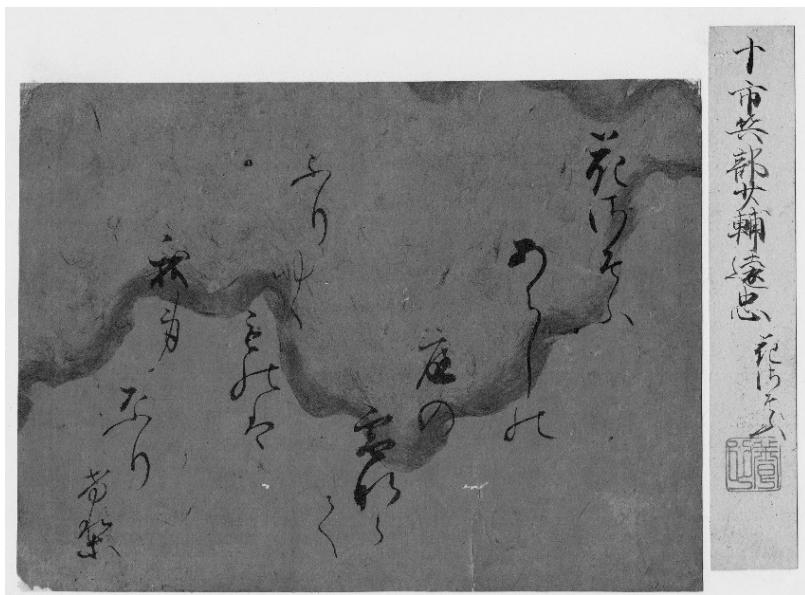 十市兵部少輔遠忠 花さそふ
花さそふ
あらしの
庭の
雪なら
て
ふりゆく
ものは
我身
なり
けり